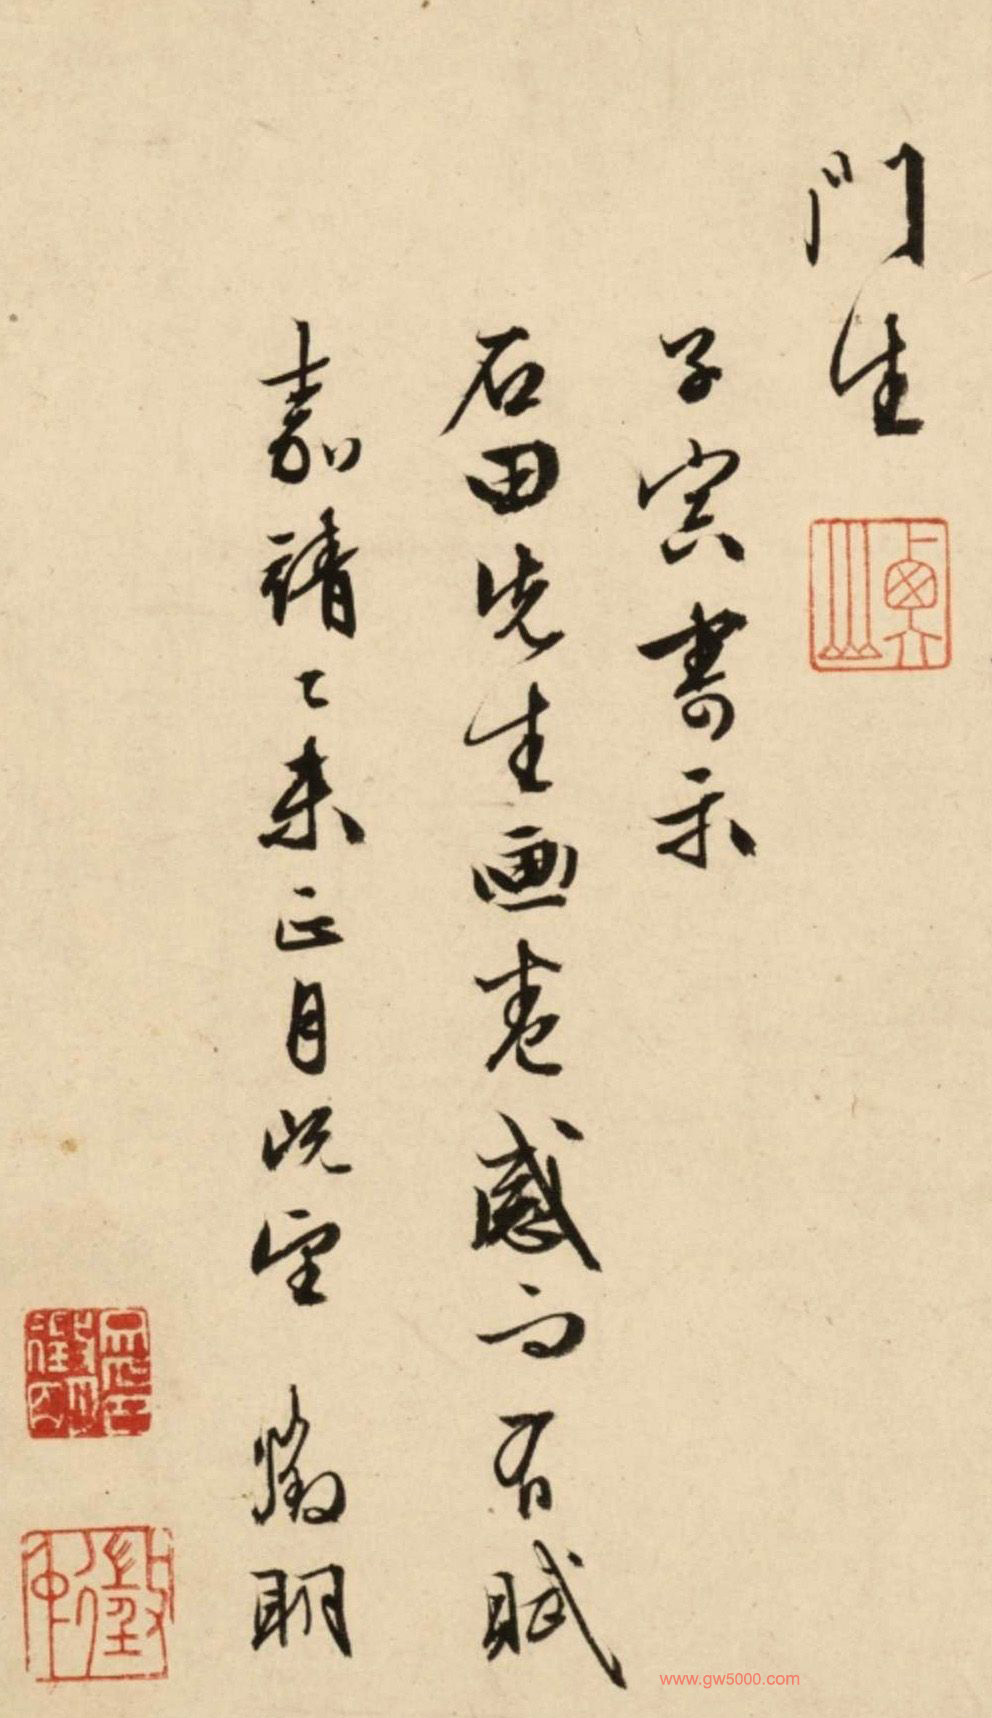 門生
子寅示
石田先生画卷感而有賦
嘉靖乙未正月既望 徵明
徵仲
www.gw5000.com